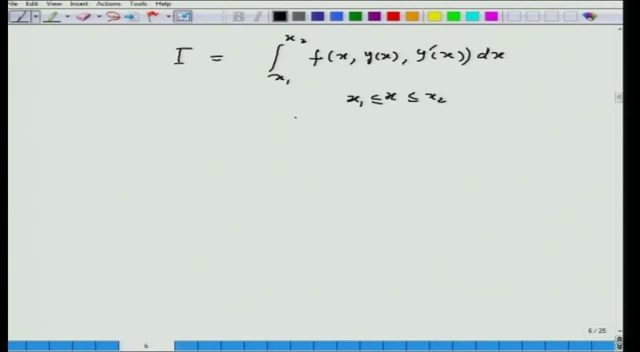 File Edit View Insert Actions Tools Help
I = ∫_{x₁}^{x₂} f(x, y(x), y'(x)) dx
x₁ ≤ x ≤ x₂
6 / 25
6